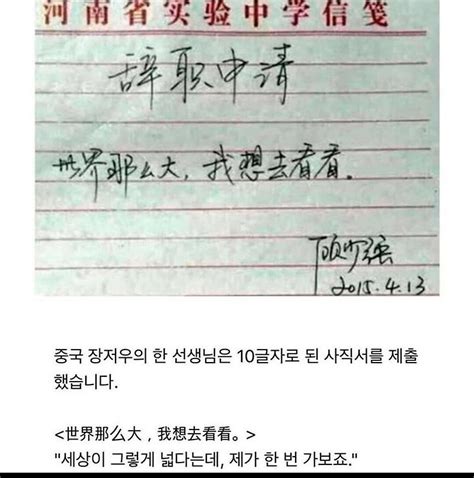 河南省实验中学信笺
辞职申请
世界那么大，我想去看看.
顾少强
2015.4.13
중국 장저우의 한 선생님은 10글자로 된 사직서를 제출
했습니다.
<世界那么大，我想去看看。>
"세상이 그렇게 넓다는데, 제가 한 번 가보죠."